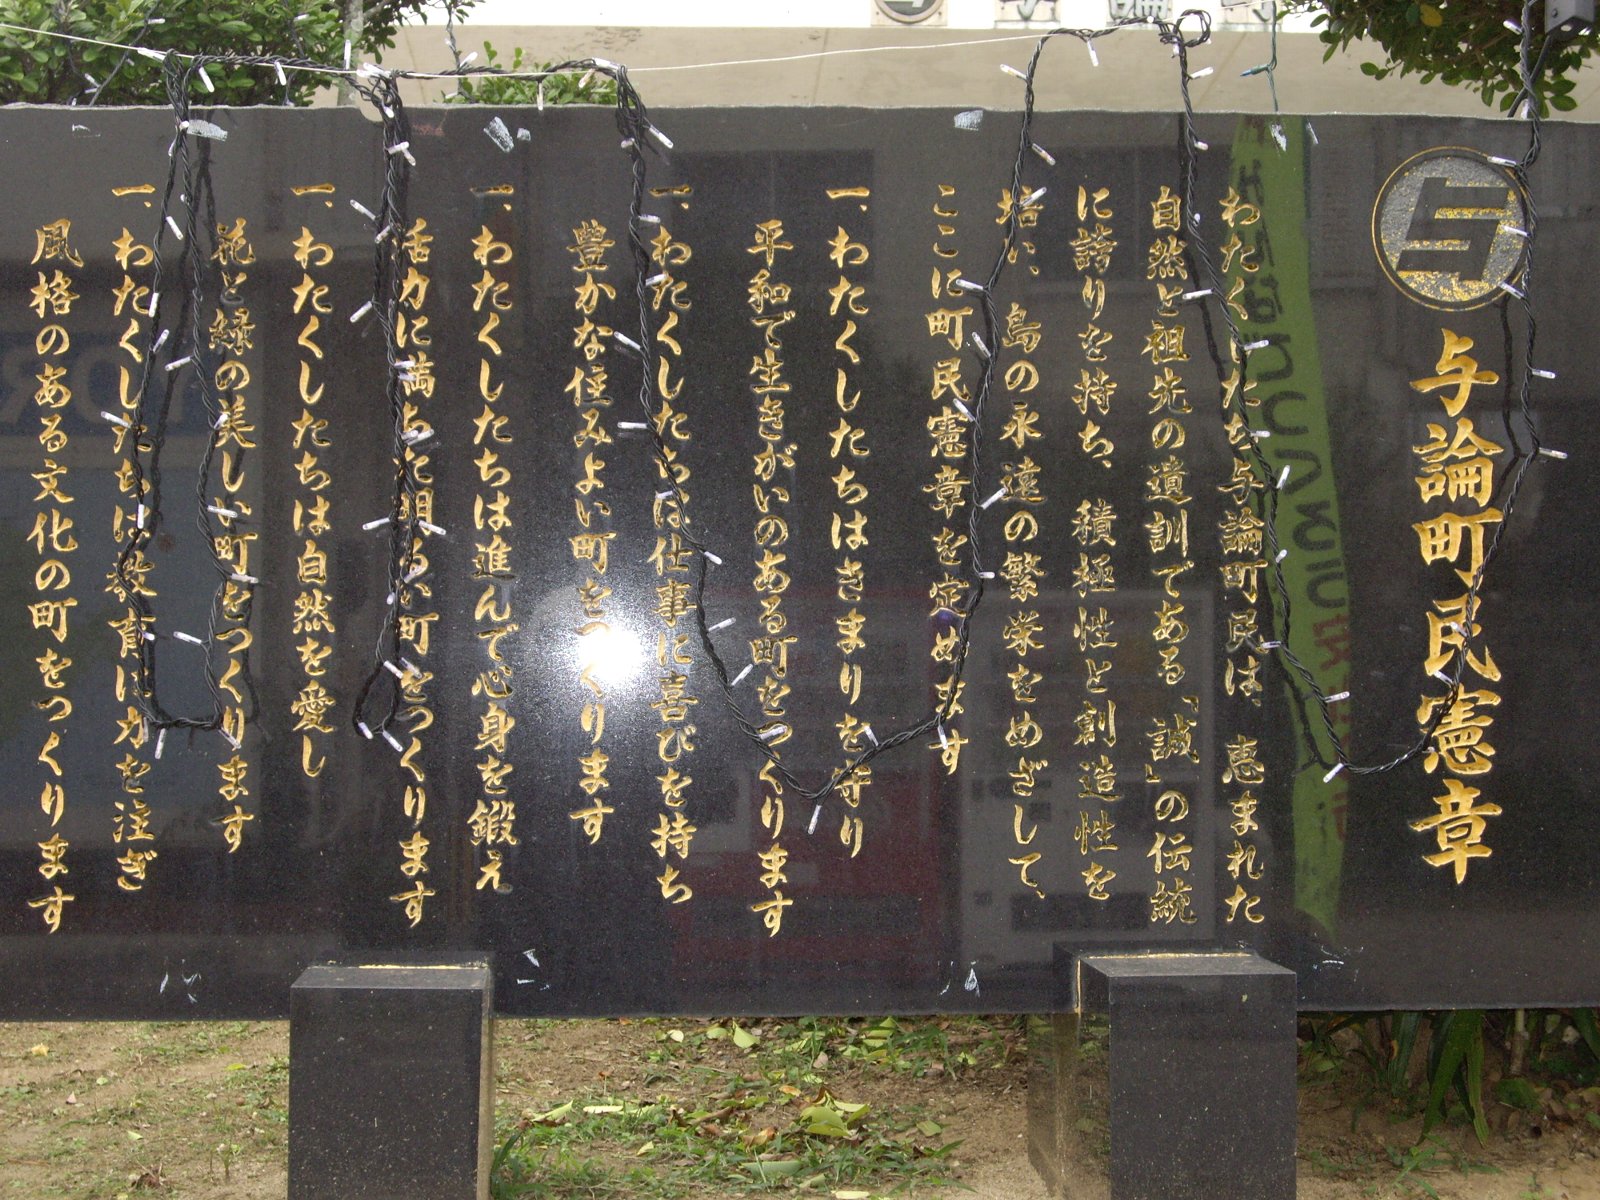 与論町民憲章
わたくしたち与論町民は、恵まれた
自然と祖先の遺訓である「誠」の伝統
に誇りを持ち、積極性と創造性を
培い、島の永遠の繁栄をめざして、
ここに町民憲章を定めます
一、わたくしたちはきまりを守り
平和で生きがいのある町をつくります
一、わたくしたちは仕事に喜びを持ち
豊かな住みよい町をつくります
一、わたくしたちは進んで心身を鍛え
活力に満ちた明るい町をつくります
一、わたくしたちは自然を愛し
花と緑の美しい町をつくります
一、わたくしたちは教育に力を注ぎ
風格のある文化の町をつくります